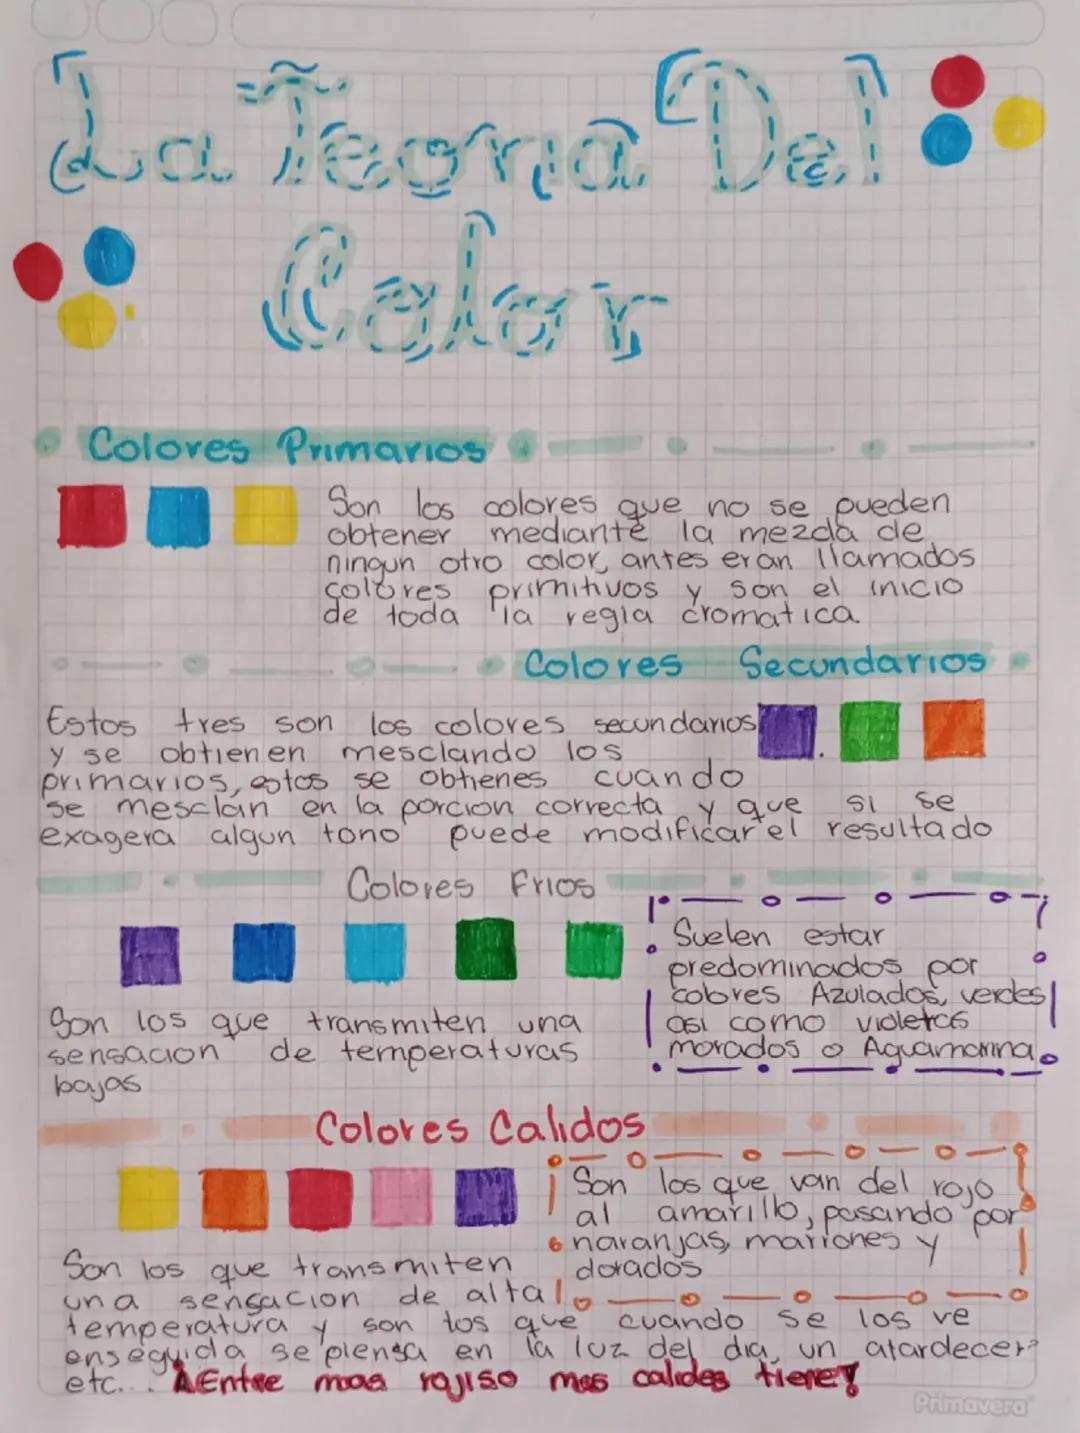 La Teoria Del
Color
Colores Primarios
Son los colores que no se pueden
obtener mediante la mezcla de
ningun otro color, antes eran llamados
colores primitivos y son el inicio
de toda la regla cromatica.
Colores Secundarios
Estos tres son los colores secundarios
y se obtienen mesclando los
primarios, estos se obtienes cuando
se mesclan en la porcion correcta y que si se
exagera algun tono puede modificar el resultado
Colores Frios
Suelen estar
predominados por
colores Azulados, verdes
asi como violetas
morados o Aguamarina
Son los que transmiten una
sensacion de temperaturas
bajas
Colores Calidos
Son los que van del rojo
al amarillo, pasando por
naranjas, marrones y
dorados
Son los que transmiten
una sensacion de alta
temperatura y son los que cuando se los ve
enseguida se piensa en la luz del dia, un atardecer
etc... ¡Entre mas rojiso mas calides tiene!
Primavera